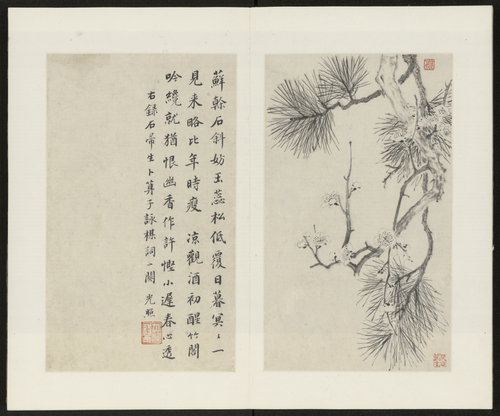 蘚榦石斜妨玉蕊松低覆日暮冥〻一
見来略比年時瘦 凉觀酒初醒竹閣
吟纔就猶恨幽香作許慳小遲春心透
右録石帚生卜算子詠楳詞一闋 光照